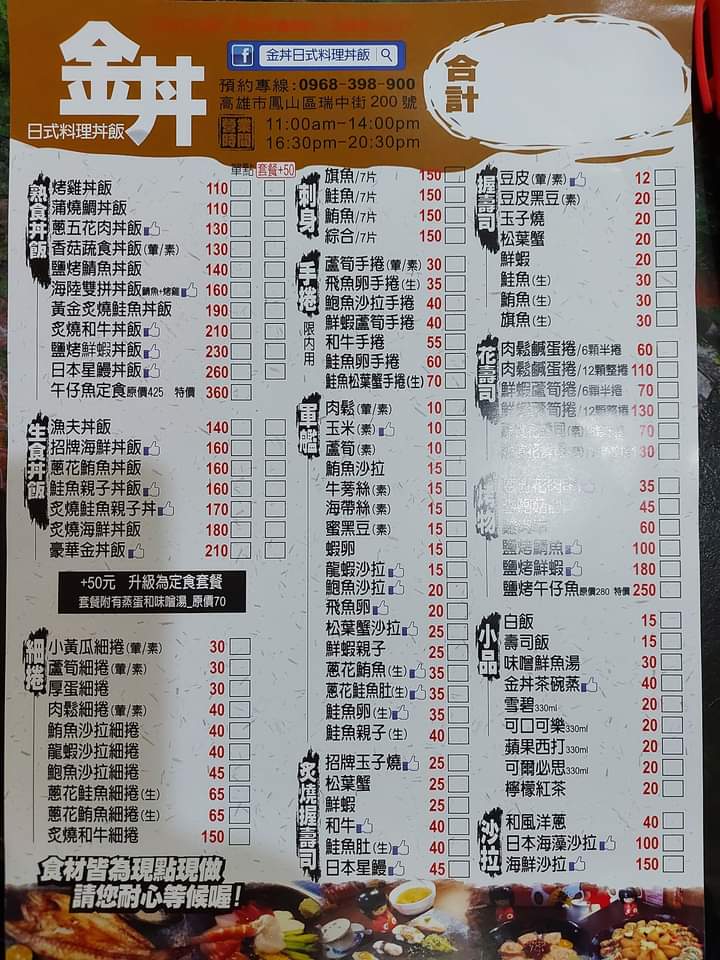 金丼
日式料理丼飯
f 金丼日式料理丼飯
預約專線:0968-398-900
高雄市鳳山區瑞中街200號
營業時間
11:00am-14:00pm
16:30pm-20:30pm
合計
單點 套餐+50
熟食丼飯
烤雞丼飯 110
蒲燒鯛丼飯 110
蔥五花肉丼飯 130
香菇蔬食丼飯(葷/素) 130
鹽烤鯖魚丼飯 140
海陸雙拼丼飯 鯖魚+烤雞 160
黃金炙燒鮭魚丼飯 190
炙燒和牛丼飯 210
鹽烤鮮蝦丼飯 230
日本星鰻丼飯 260
午仔魚定食 原價425 特價 360
生食丼飯
漁夫丼飯 140
招牌海鮮丼飯 160
蔥花鮪魚丼飯 160
鮭魚親子丼飯 160
炙燒鮭魚親子丼 170
炙燒海鮮丼飯 180
豪華金丼飯 210
+50元 升級為定食套餐
套餐附有蒸蛋和味噌湯_原價70
細捲
小黃瓜細捲(葷/素) 30
蘆筍細捲(葷/素) 30
厚蛋細捲 30
肉鬆細捲(葷/素) 40
鮪魚沙拉細捲 40
龍蝦沙拉細捲 40
鮑魚沙拉細捲 45
蔥花鮭魚細捲(生) 65
蔥花鮪魚細捲(生) 65
炙燒和牛細捲 150
食材皆為現點現做
請您耐心等候喔!
刺身
旗魚/7片 150
鮭魚/7片 150
鮪魚/7片 150
綜合/7片 150
手捲
限內用
蘆筍手捲(葷/素) 30
飛魚卵手捲(生) 35
鮑魚沙拉手捲 40
鮮蝦蘆筍手捲 40
和牛手捲 55
鮭魚卵手捲 60
鮭魚松葉蟹手捲(生) 70
軍艦
肉鬆(葷/素) 10
玉米(素) 10
蘆筍(素) 10
鮪魚沙拉 15
牛蒡絲(素) 15
海帶絲(素) 15
蜜黑豆(素) 15
蝦卵 15
龍蝦沙拉 15
鮑魚沙拉 20
飛魚卵 20
松葉蟹沙拉 25
鮮蝦親子 25
蔥花鮪魚(生) 35
蔥花鮭魚肚(生) 35
鮭魚卵(生) 35
鮭魚親子(生) 40
炙燒握壽司
招牌玉子燒 25
松葉蟹 25
鮮蝦 25
和牛 40
鮭魚肚(生) 40
日本星鰻 45
握壽司
豆皮(葷/素) 12
豆皮黑豆(素) 20
玉子燒 20
松葉蟹 20
鮮蝦 20
鮭魚(生) 30
鮪魚(生) 30
旗魚(生) 30
花壽司
肉鬆鹹蛋捲/6顆半捲 60
肉鬆鹹蛋捲/12顆整捲 110
鮮蝦蘆筍捲/6顆半捲 70
鮮蝦蘆筍捲/12顆整捲 130
70
30
烤物
35
45
60
鹽烤鯖魚 100
鹽烤鮮蝦 180
鹽烤午仔魚 原價280 特價 250
小品
白飯 15
壽司飯 15
味噌鮮魚湯 30
金丼茶碗蒸 40
雪碧330ml 20
可口可樂330ml 20
蘋果西打330ml 20
可爾必思330ml 20
檸檬紅茶 20
沙拉
和風洋蔥 40
日本海藻沙拉 100
海鮮沙拉 150